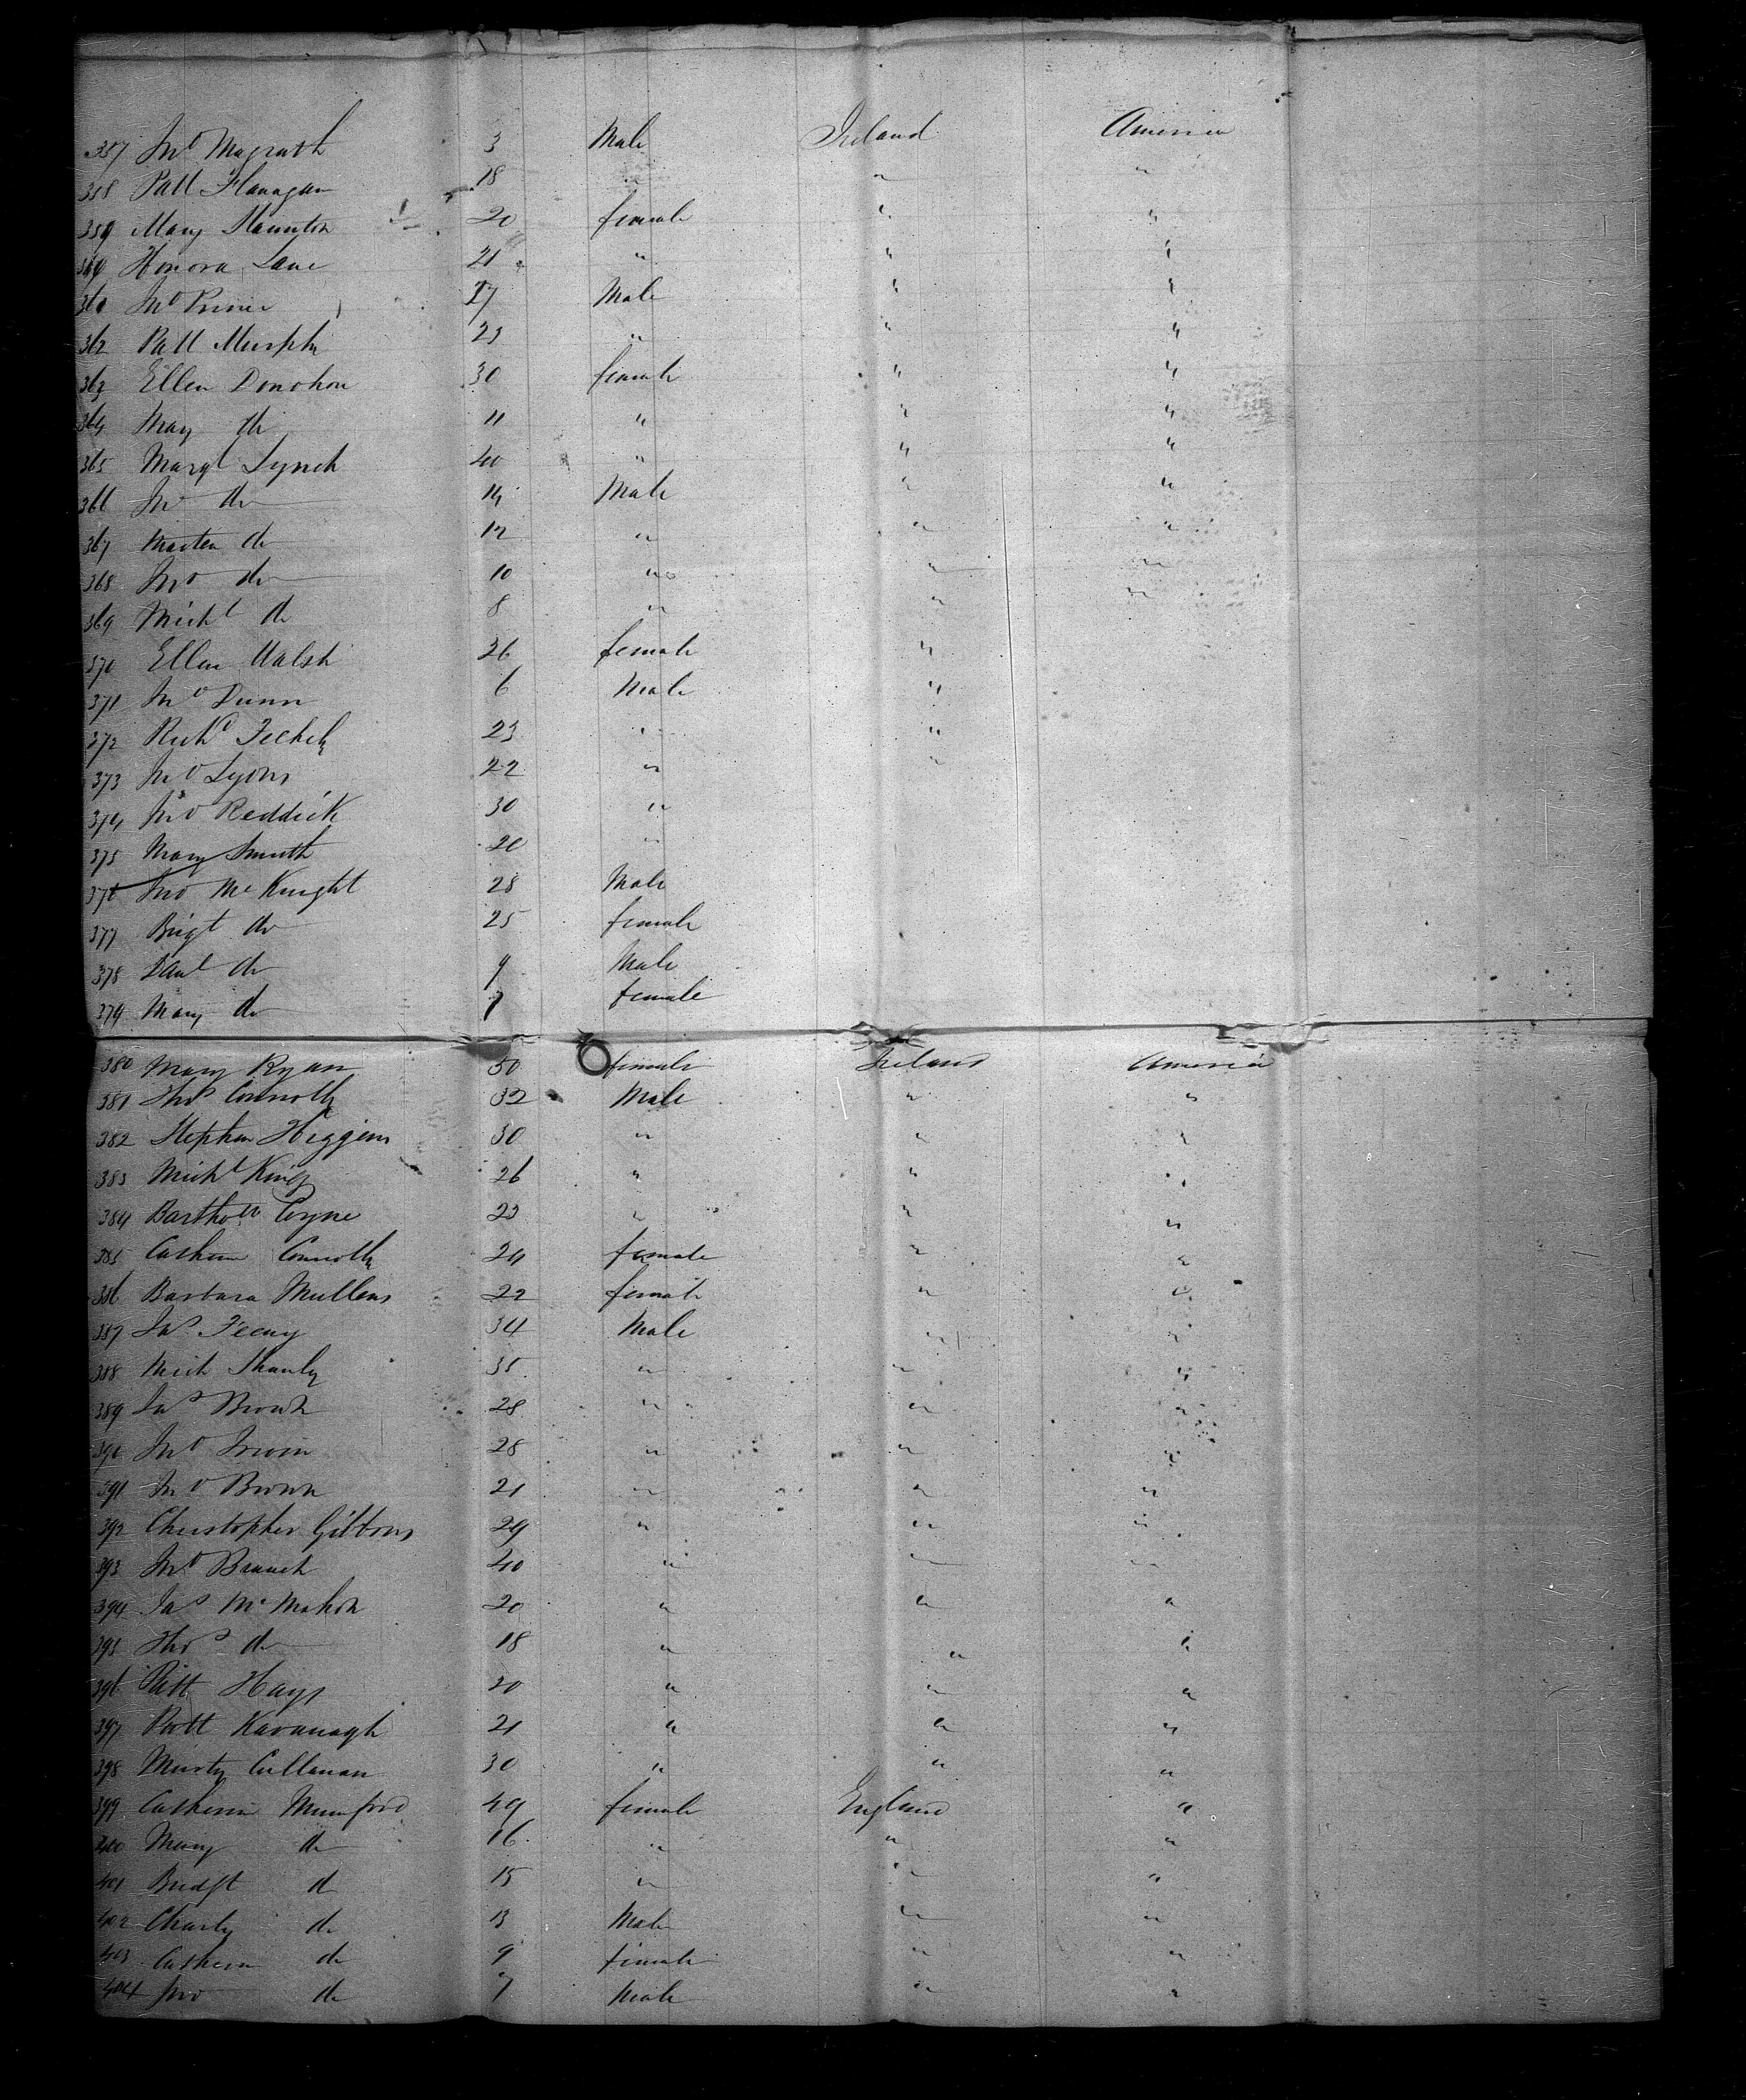 357 Jno Magrath 3 Male Ireland America
358 Patt Flanagan 18 " " "
359 Mary Staunton 20 female " "
360 Honora Lane 21 " " "
361 Jno Prince 27 Male " "
362 Patt Murphy 23 " " "
363 Ellen Donohou 30 female " "
364 Mary do 11 " " "
365 Margt Lynch 40 " " "
366 Jno do 14 Male " "
367 Marten do 12 " " "
368 Jno do 10 " " "
369 Michl do 8 " " "
370 Ellen Walsh 26 female "
371 Jno Dunn 6 Male "
372 Richd 23 " "
373 Jno Lyons 22 " "
374 Jno Reddick 30 "
375 Mary Smith 20 "
376 Jno McKnight 28 Male
377 Brigt do 25 female
378 Danl do 9 Male
379 Mary do 7 female
380 Mary Ryan 50 female Ireland America
381 Thos Connolly 32 Male " "
382 Stephen Higgins 30 " " "
383 Michl King 26 " " "
384 Bartholw Coyne 23 " " "
385 Cathern Connolly 24 female " "
386 Barbara Mullens 22 female " "
387 Jas Feeny 34 Male " "
388 Mich Shanly 35 " " "
389 Jas Brown 28 " " "
390 Jno Irwin 28 " " "
391 Jno Brown 21 " " "
392 Christopher Gibbons 29 " " "
393 Jno Branch 40 " " "
394 Jas McMahon 20 " " "
395 Thos do 18 " " "
396 Patt Hays 20 " " "
397 Patt Kavanagh 21 " " "
398 Murty Cullanan 30 " " "
399 Catherin Mumford 49 female England "
400 Mary do 16 " " "
401 Bridgt do 15 " " "
402 Charly do 13 Male " "
403 Cathern do 9 female " "
404 Jno do 7 Male " "